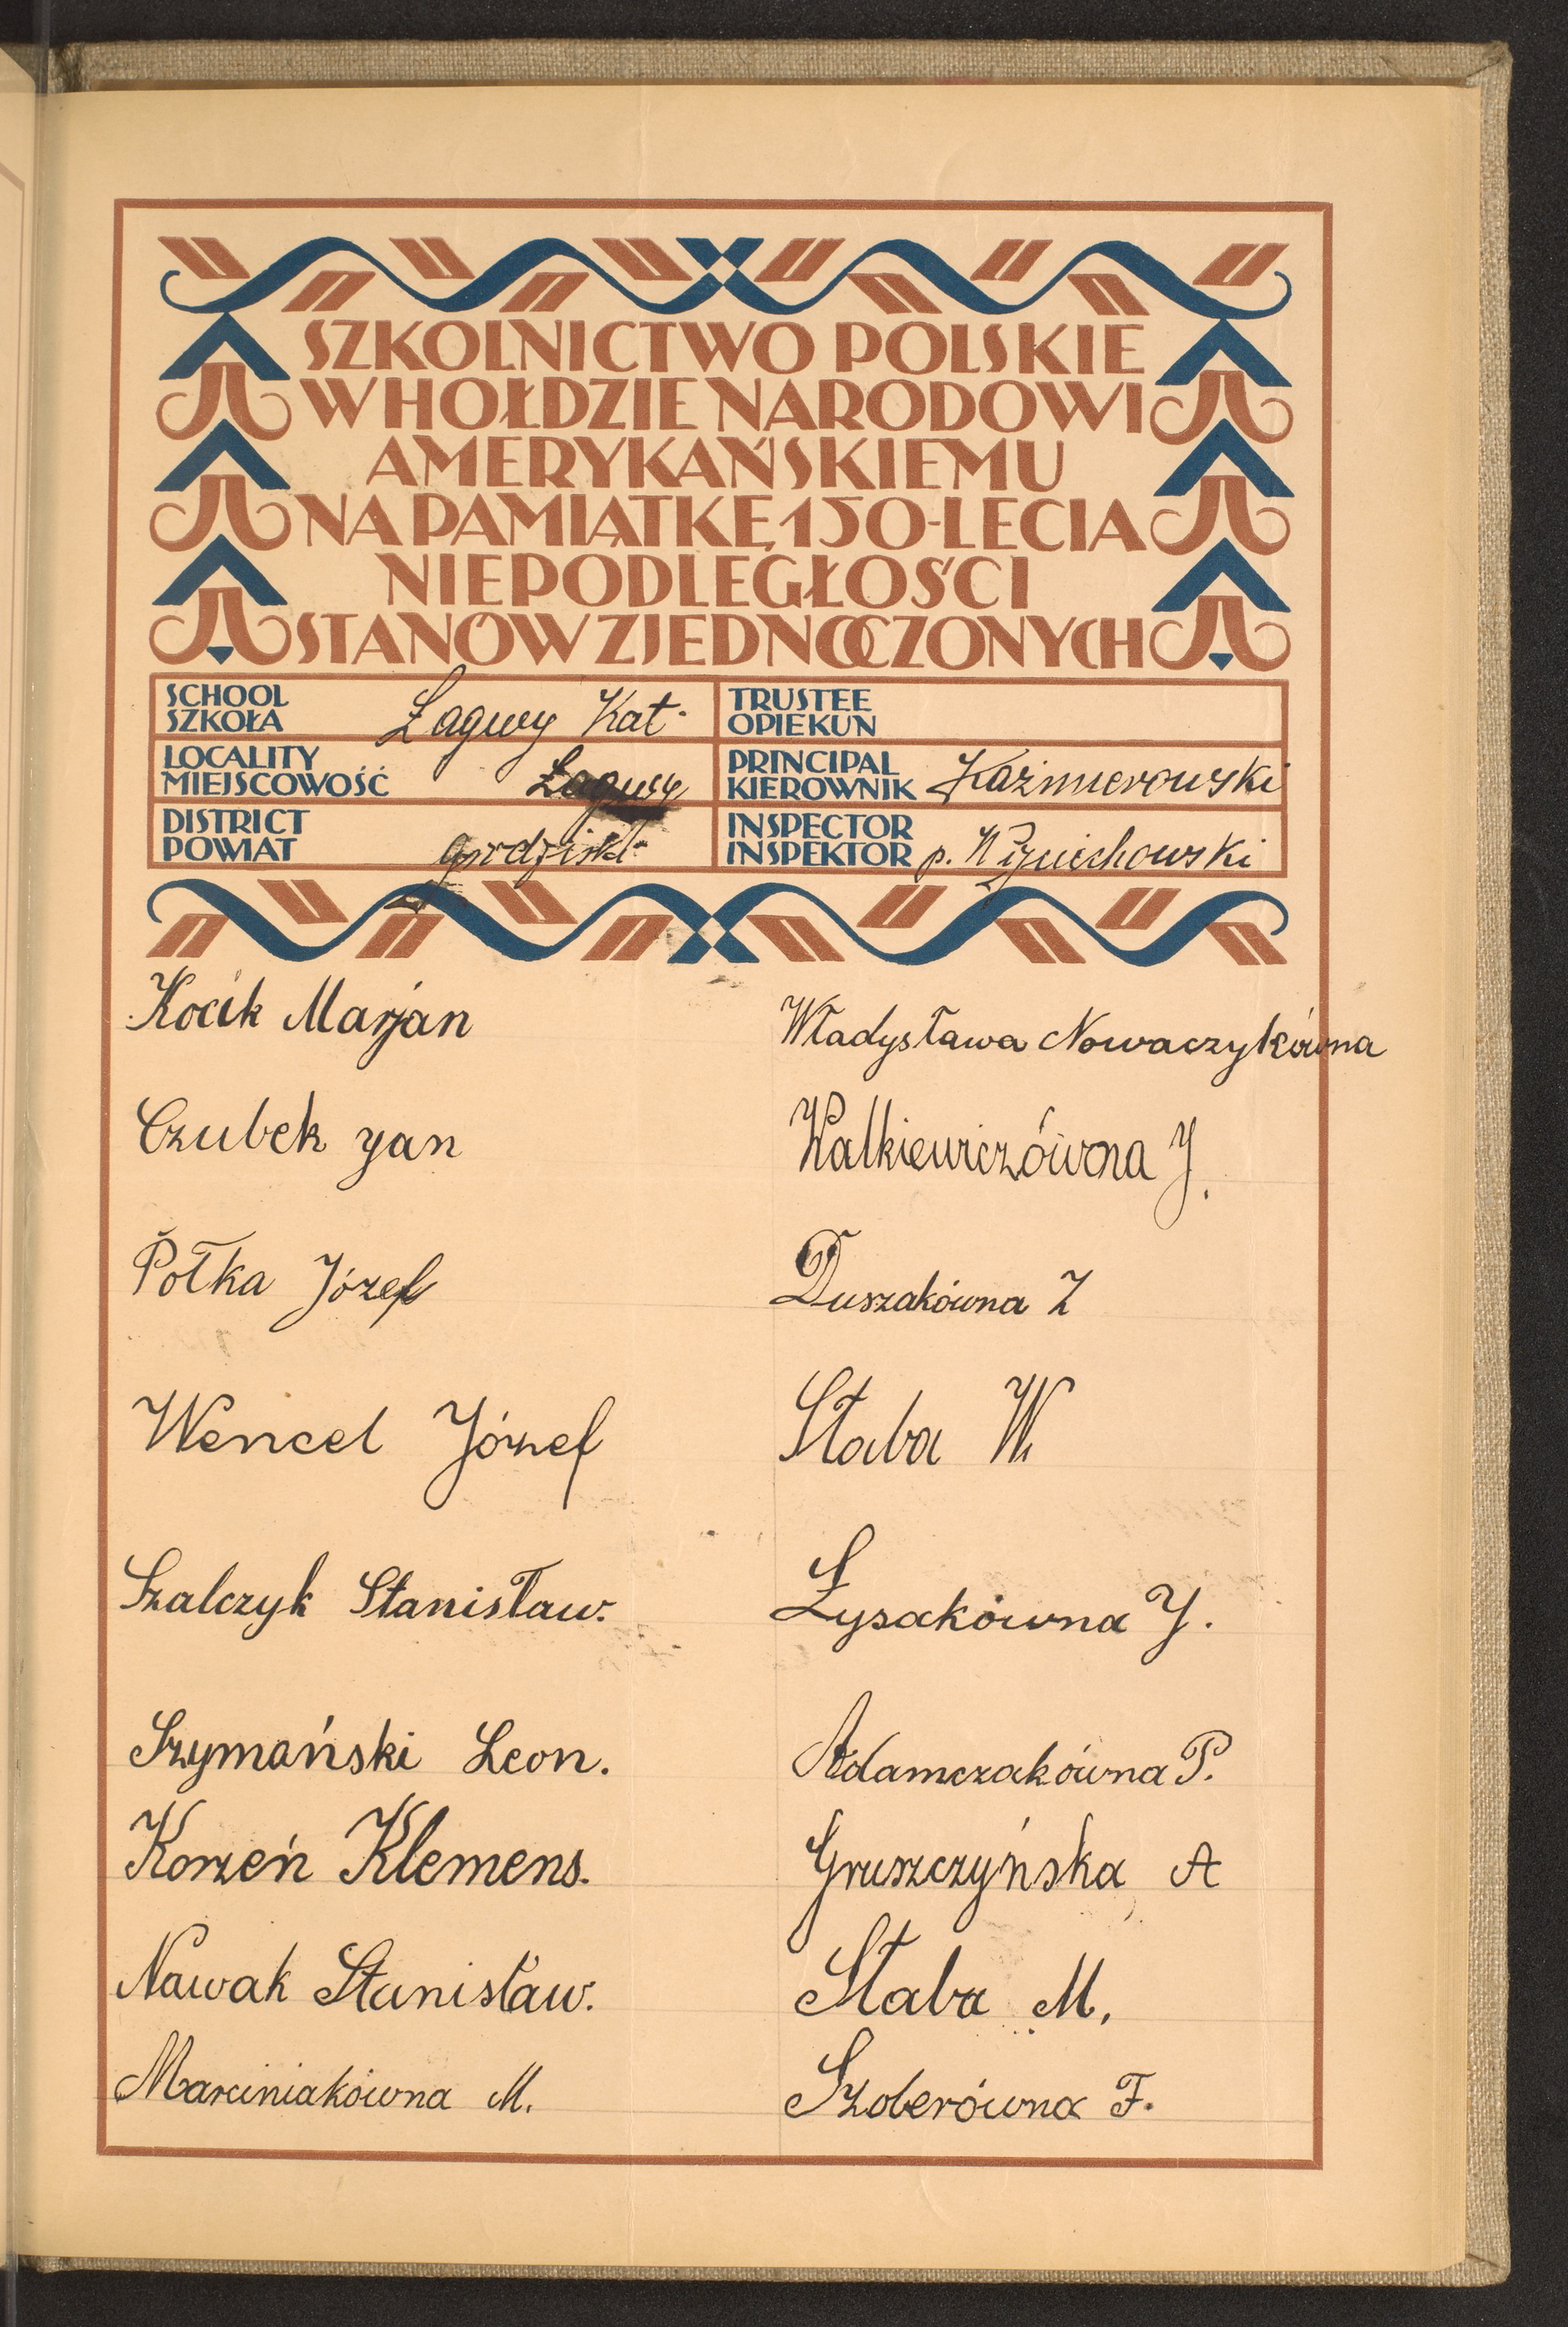 SZKOLNICTWO POLSKIE
W HOŁDZIE NARODOWI
AMERYKAŃSKIEMU
NA PAMIĄTKĘ 150-LECIA
NIEPODLEGŁOŚCI
STANÓW ZJEDNOCZONYCH
SCHOOL
SZKOŁA Łagwy Kat.
LOCALITY
MIEJSCOWOŚĆ Łagwy
DISTRICT
POWIAT grodziski
TRUSTEE
OPIEKUN
PRINCIPAL
KIEROWNIK Kaźmierowski
INSPECTOR
INSPEKTOR p.
Kocik Marjan
Czubek Jan
Połka Józef
Wencel Józef
Szalczyk Stanisław.
Szymański Leon.
Korzeń Klemens.
Nawak Stanisław.
Marciniakówna M.
Władysława Nowaczykówna
Walkiewiczówna J.
Duszakówna Z
Słaba W.
Łysakówna J.
Adamczakówna P.
Gruszczyńska A
Słaba M.
Szoberówna F.